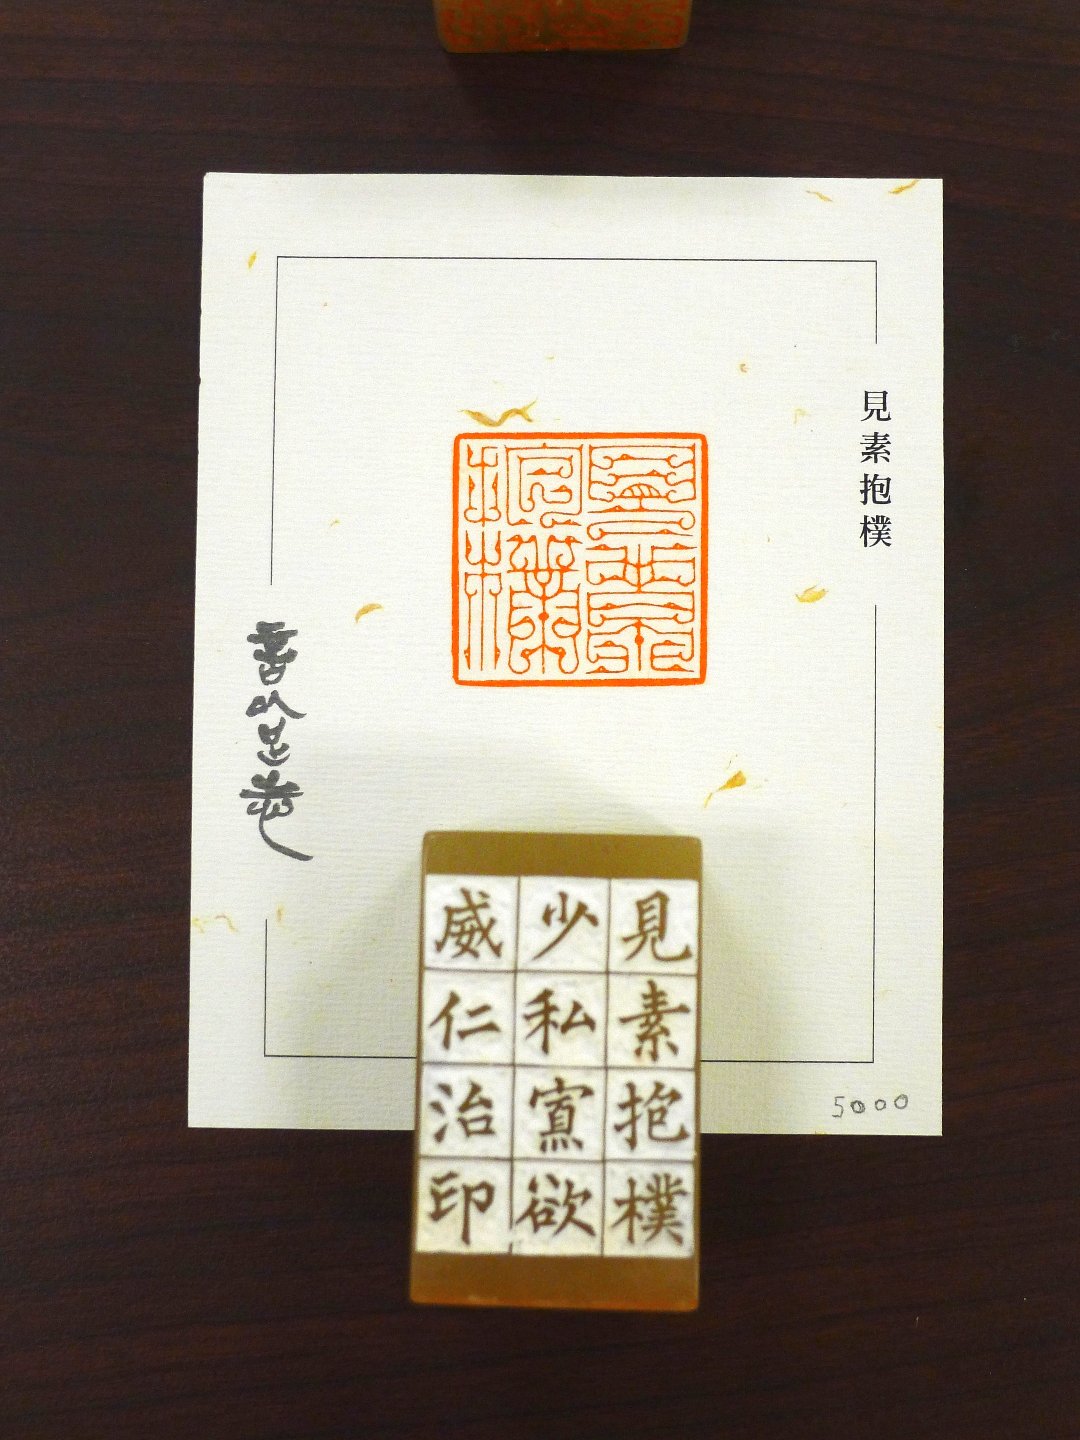 見素抱樸
見素抱樸
見素抱樸
少私寡欲
威仁治印
5000